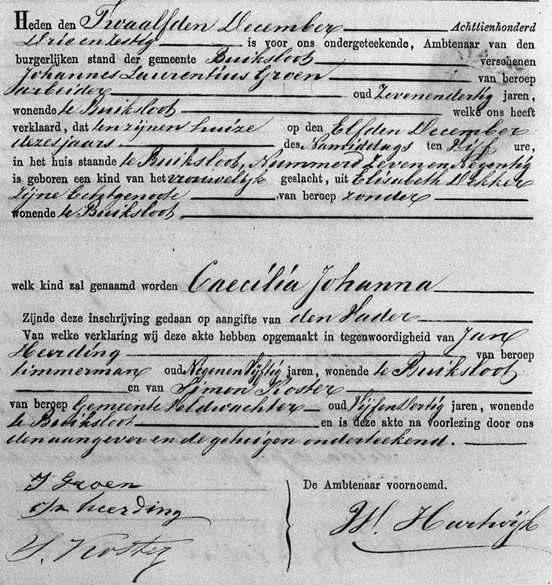 Heden den Twaalfden December Achttienhonderd
Drie en zestig is voor ons ondergeteekende, Ambtenaar van den
burgerlijken stand der gemeente Buiksloot verschenen
Johannes Laurentius Groen van beroep
arbeider oud Zevenendertig jaren,
wonende te Buiksloot welke ons heeft
verklaard, dat ten zijnen huize op den Elfden December
dezes jaars des Namiddags ten Vijf ure,
in het huis staande te Buiksloot, Nummero Zeven en Negentig
is geboren een kind van het vrouwelijk geslacht, uit Elisabeth Dekker
Zijne Echtgenoote van beroep zonder
wonende te Buiksloot
welk kind zal genaamd worden Caecilia Johanna
Zijnde deze inschrijving gedaan op aangifte van den Vader
Van welke verklaring wij deze akte hebben opgemaakt in tegenwoordigheid van Jan
Heerding van beroep
timmerman oud Negenen Vijftig jaren, wonende te Buiksloot
en van Simon Koster
van beroep Gemeente Veldwachter oud Vijfen Dertig jaren, wonende
te Buiksloot en is deze akte na voorlezing door ons
den aangever in de getuigen onderteekend.
J Groen
De Ambtenaar voornoemd.
Jn heerding
W. Hartwijk
S. Koster